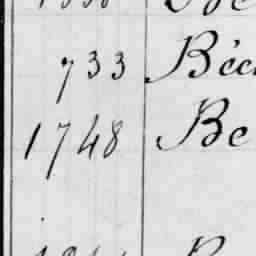 733 Béc
1748 Be